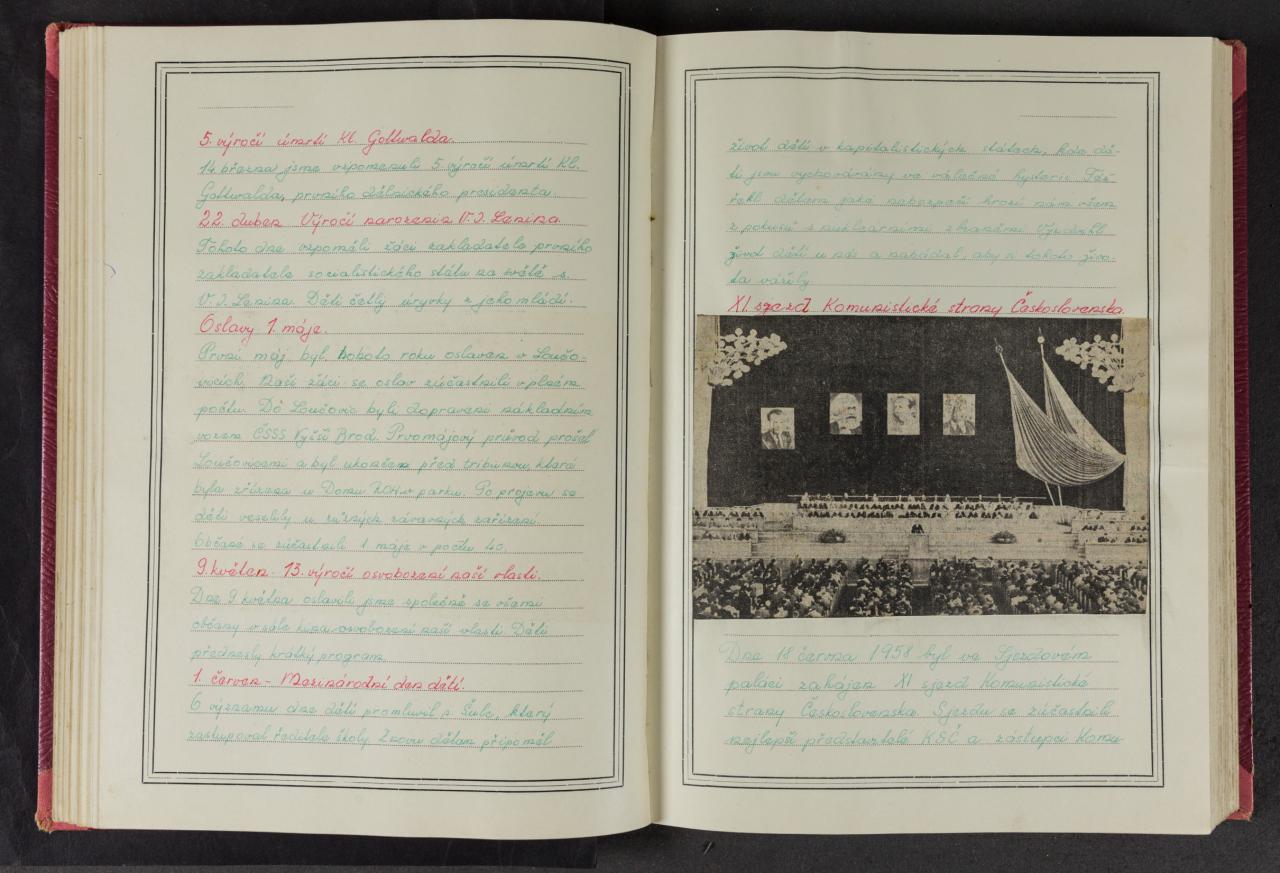 5. výročí úmrtí Kl. Gottwalda.
14. března jsme vzpomenuli 5. výročí úmrtí Kl.
Gottwalda, prvního dělnického presidenta.
22. duben Výročí narození V. I. Lenina.
Tohoto dne vzpoměli žáci zakladatele prvního
zakladatele socialistického státu na světě s.
V. I. Lenina. Děti četly úryvky z jeho mládí.
Oslavy 1. máje.
První máj byl tohoto roku oslaven v Loučo-
vicích. Naši žáci se oslav zúčastnili v plném
počtu. Do Loučovic byli dopraveni nákladním
vozem ČSSS Vyšší Brod. Prvomájový průvod prošel
Loučovicemi a byl ukončen před tribunou, která
byla zřízena u Domu ROH v parku. Po projevu se
děti veselily u různých zábavných zařízení.
Občané se zúčastnili 1. máje v počtu 40.
9. květen - 13. výročí osvobození naší vlasti.
Dne 9. května oslavili jsme společně se všemi
občany v sále kina osvobození naší vlasti. Děti
přednesly krátký program.
1. červen - Mezinárodní den dětí.
O významu dne dětí promluvil s. Šulc, který
zastupoval ředitele školy. Znovu dětem připoměl
život dětí v kapitalistických státech, kde dě-
ti jsou vychovávány ve válečné hysterii. Též
řekl dětem jaké nebezpečí hrozí nám všem
z pokusů s nuklearními zbraněmi. Vyzdvihl
život dětí u nás a nabádal, aby si tohoto živo-
ta vážily.
XI. sjezd Komunistické strany Československa.
Dne 18. června 1958 byl ve Sjezdovém
paláci zahájen XI. sjezd Komunistické
strany Československa. Sjezdu se zúčastnili
nejlepší představitelé KSČ a zástupci Komu-